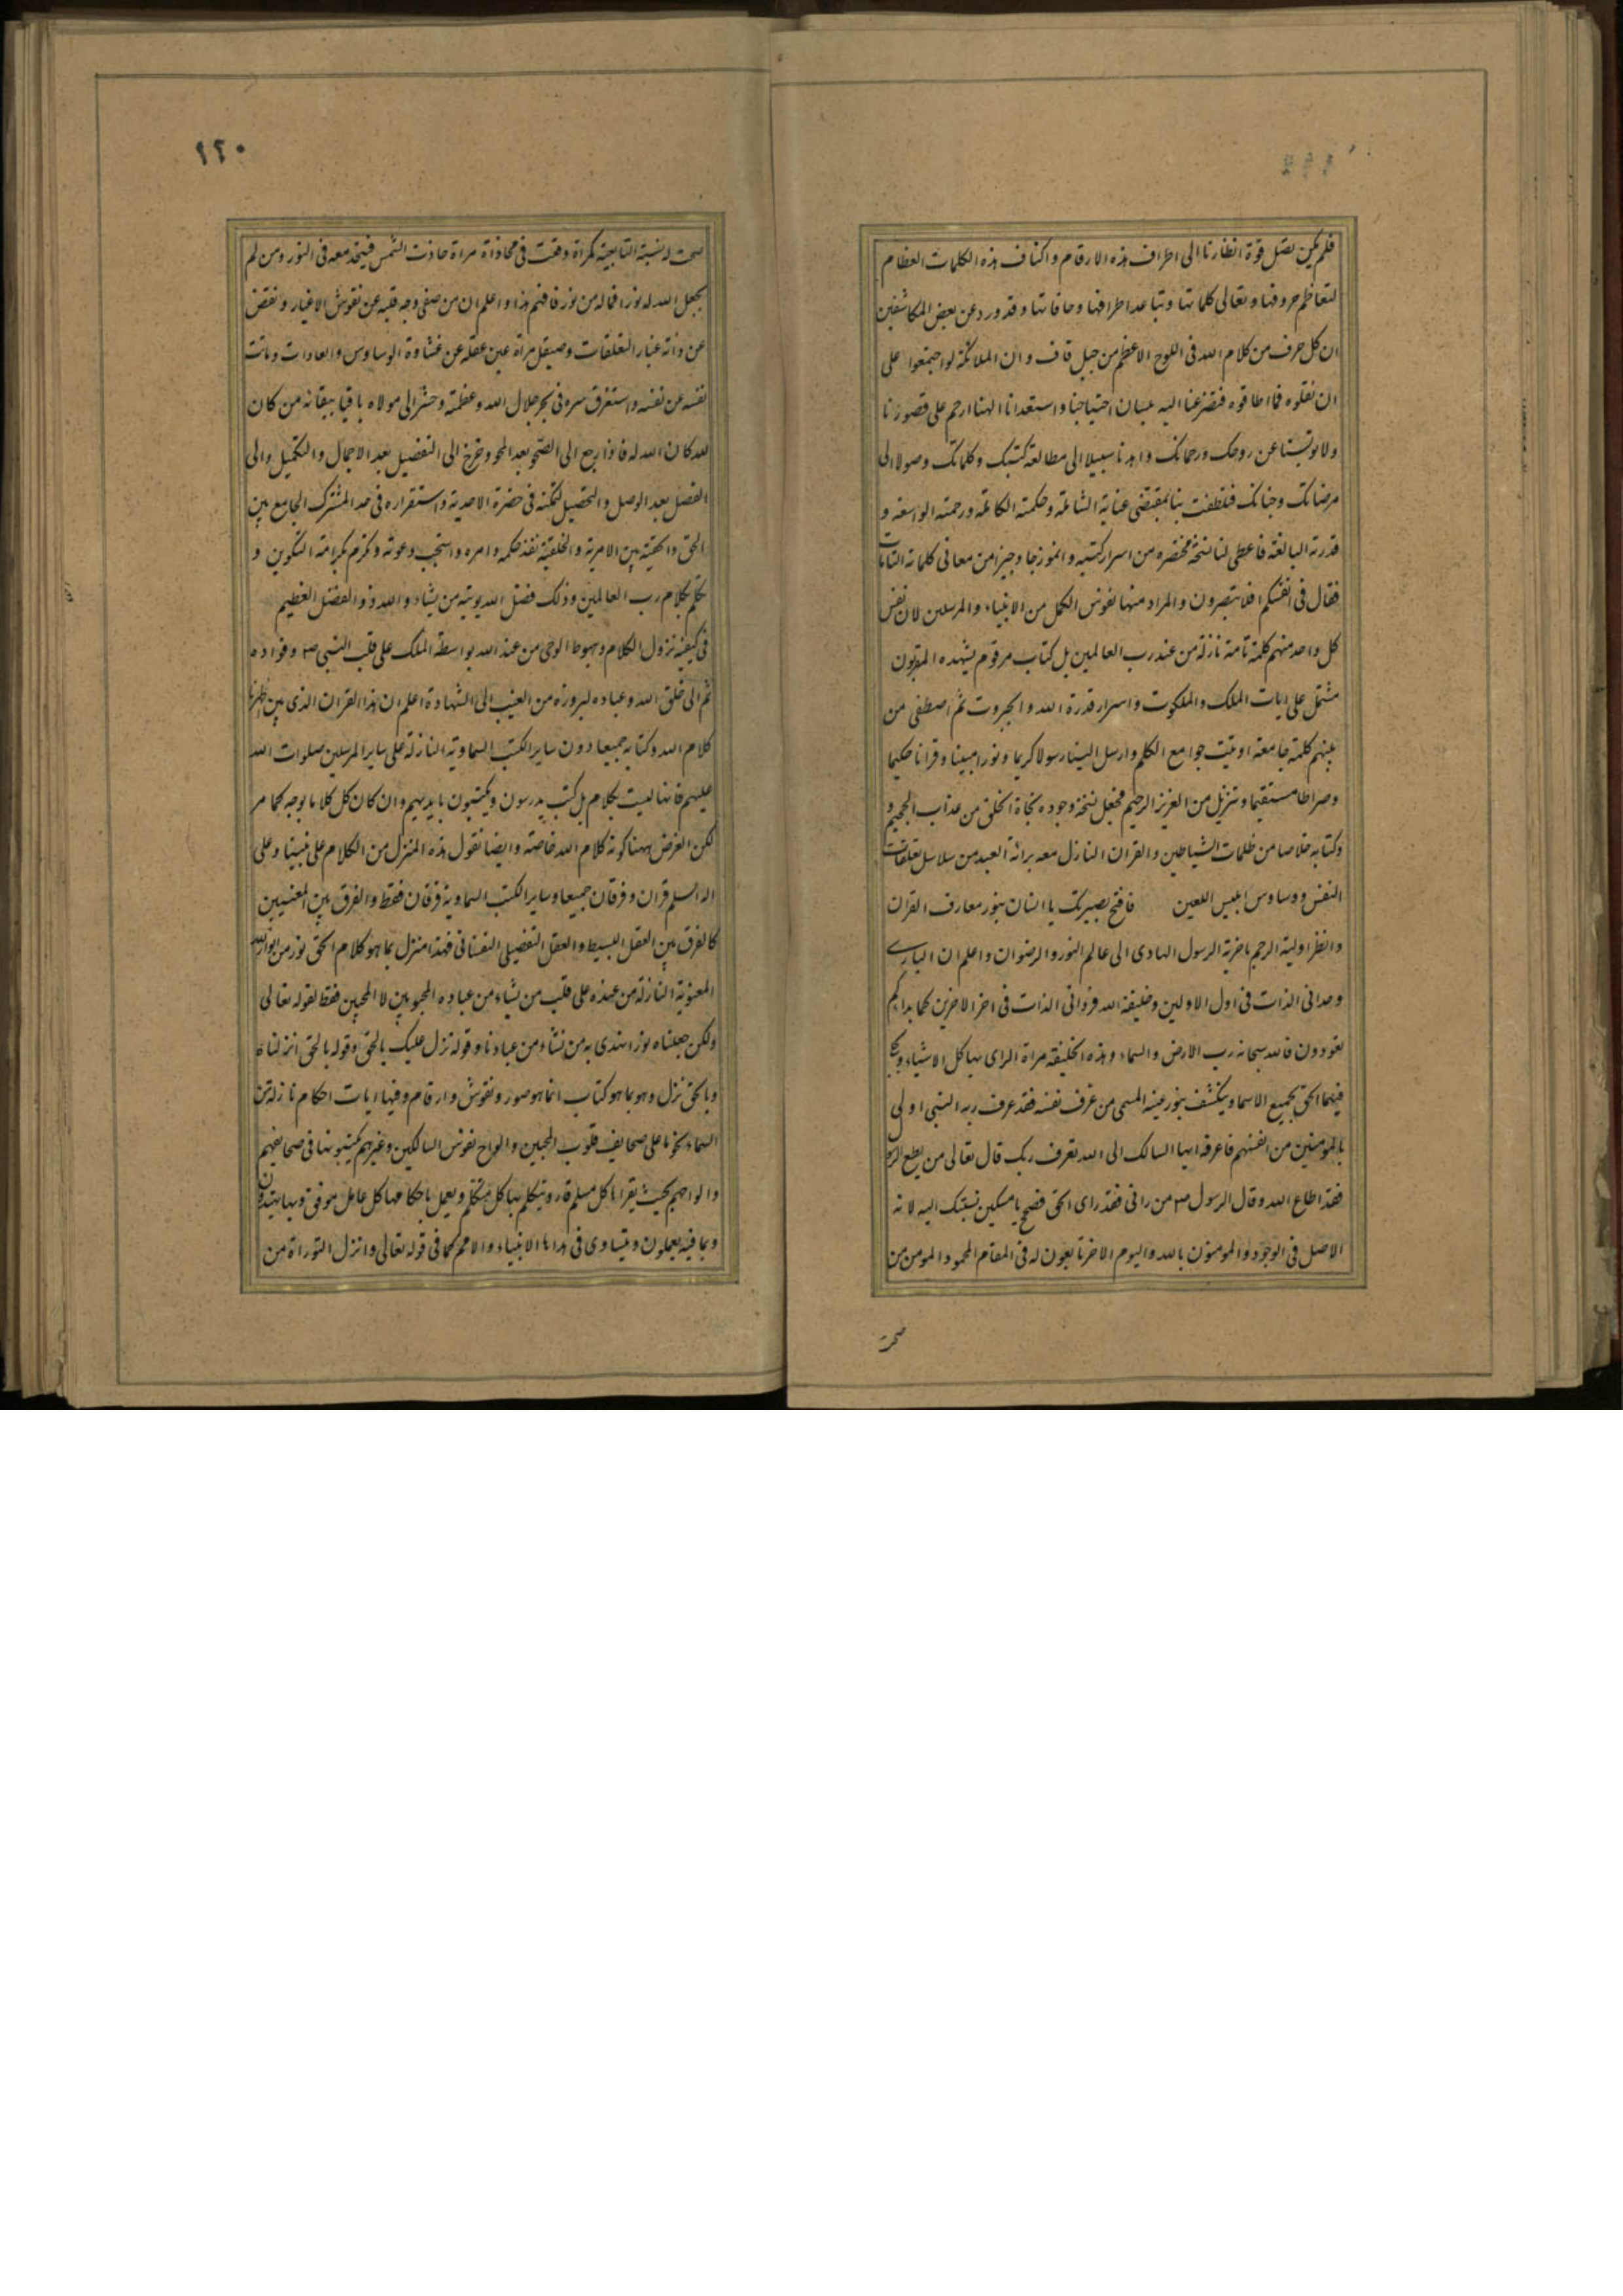 فلم يكن يصل قوة انظارنا الى اطراف هذه الارقام واكناف هذه الكلمات العظام
لتعاظم حروفها وتعالى كلماتها وتباعد اطرافها وحافاتها وقد ورد عن بعض المكاشفين
ان كل حرف من كلام الله فى اللوح الاعظم من جبل قاف وان الملائكة لو اجتمعوا على
ان نقلوه فما اطاقوه فتضرعنا اليه بلسان احتياجنا واستعدادنا الهنا ارحم على قصورنا
ولا تويسنا عن روحك ورحمتك واهدنا سبيلا الى مطالعة كتبك وكلماتك وصولا الى
مرضاتك وجنانك فتلطفت بنا بمقتضى عناية الشاملة وحكمته الكاملة ورحمته الواسعة و
قدرته البالغة فاعطى لنا نسخة مختصرة من اسرار كتبه وانموزجا وجيزا من معانى كلماته التامات
فقال فى انفسكم افلا تبصرون والمراد منها نفوس الكمل من الانبياء والمرسلين لان نفس
كل واحد منهم كلمة تامة نازلة من عند رب العالمين بل كتاب مرقوم يشهده المقربون
مشتمل على ايات الملك والملكوت واسرار قدرة الله والجبروت ثم اصطفى من
بينهم كلمة جامعة اوتيت جوامع الكلم وارسل الينا رسولا كريما ونورا مبينا وقرانا حكيما
وصراطا مستقيما وتنزيل من العزيز الرحيم فجعل نسخة وجوده نجاة الخلق من عذاب الجحيم و
وكتابه خلاصا من ظلمات الشياطين والقران النازل معه براة العبد من سلاسل تعلقات
النفس ووساوس ابليس اللعين فافتح بصيرتك يا انسان بنور معارف القران
وانظر اولية الرحيم باخرية الرسول الهادى الى عالم النور والرضوان واعلم ان البارى
وحدانى الذات فى اول الاولين وخليفة الله فردانى الذات فى اخر الاخرين كما بداكم
تعودون فالله سبحانه رب الارض والسماء وهذه الخليفة مراة الراى بها كل الاشياء ويتجلى
فيها الحق بجميع الاسما وينكشف بنور عينه المسمى من عرف نفسه فقد عرف ربه النبى اولى
بالمومنين من انفسهم فاعرفه ايها السالك الى الله تعرف ربك قال تعالى من يطع الرسول
فقد اطاع الله وقال الرسول ص من رانى فقد راى الحق فصح يا مسكين نسبتك اليه لانه
الاصل فى الوجود والمومنون بالله واليوم الاخر تابعون له فى المقام المحمود المومن من
صحت
١٢٠
صحت له نسبة التابعية كمراة وقعت فى محاذاة مراة حاذت الشمس فيتحد معه فى النور ومن لم
يجعل الله له نورا فما له من نور فافهم هذا واعلم ان من صفى وجه قلبه عن نقوش الاغيار ونفض
عن ذاته غبار التعلقات وصيقل مراة عين عقله عن غشاوة الوساوس والعادات وماتت
نفسه عن نفسه واستغرق سره فى بحر جلال الله وعظمته وحشر الى مولاه باقيا ببقائه من كان
لله كان الله له فاذا رجع الى الصحو بعد المحو وخرج الى التفصيل بعد الاجمال والتكميل والى
الفصل بعد الوصل والتحصيل لتمكنه فى حضرة الاحدية واستقراره فى حد المشترك الجامع بين
الحق والخلق بين الامرية والخلقية نفذ حكمه وامره واستجيب دعوته وتكرم بكرامة التكوين و
تكلم بكلام رب العالمين وذلك فضل الله يوتيه من يشاء والله ذو الفضل العظيم
فى كيفية نزول الكلام وهبوط الوحى من عند الله بواسطة الملك على قلب النبى ص وفواده
ثم الى خلق الله وعباده لبروزه من الغيب الى الشهادة اعلم ان هذا القران الذى بين اظهرنا
كلام الله وكتابه جميعا دون ساير الكتب السماوية النازلة على ساير المرسلين صلوات الله
عليهم فانها ليست بكلام بل كتب يدرسون ويكتبون بايديهم وان كان كل كلاما بوجه كما مر
لكن الغرض ههنا كونه كلام الله خاصة وايضا نقول هذه المنزل من الكلام على نبينا وعلى
اله السلم قران وفرقان جميعا وساير الكتب السماوية فرقان فقط والفرق بين المعنيين
كالفرق بين العقل البسيط والعقل التفصيلى النفسانى فهذا منزل بما هو كلام الحق نور من انوار الله
المعنوية النازلة من عنده على قلب من يشاء من عباده المحبوبين لا المحبين فقط لقوله تعالى
ولكن جعلناه نورا نهدى به من نشاء من عبادنا وقوله نزل عليك بالحق وقوله بالحق انزلناه
وبالحق نزل وهو بما هو كتاب انما هو صور ونقوش وارقام وفيها ايات احكام نازلة من
السماء نجوما على صحايف قلوب المحبين والواح نفوس السالكين وغيرهم يكتبونها فى صحايفهم
والواحهم بحيث يقراها كل مسلم قار ويتكلم بها كل متكلم ويعمل باحكامها كل عامل موفق وبها يهتدون
وبما فيه يعملون ويتساوى فى هداها الانبياء والامم كما فى قوله تعالى وانزل التوراة من